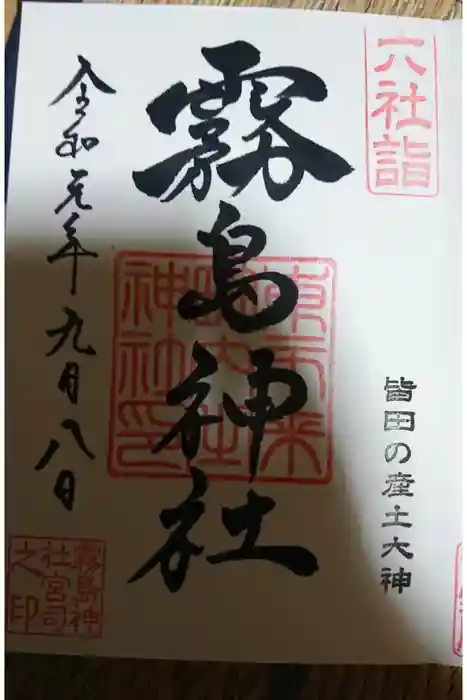 六社詣
皆田の産土大神
霧島神社
令和元年九月八日
霧島神
社宮司
之印